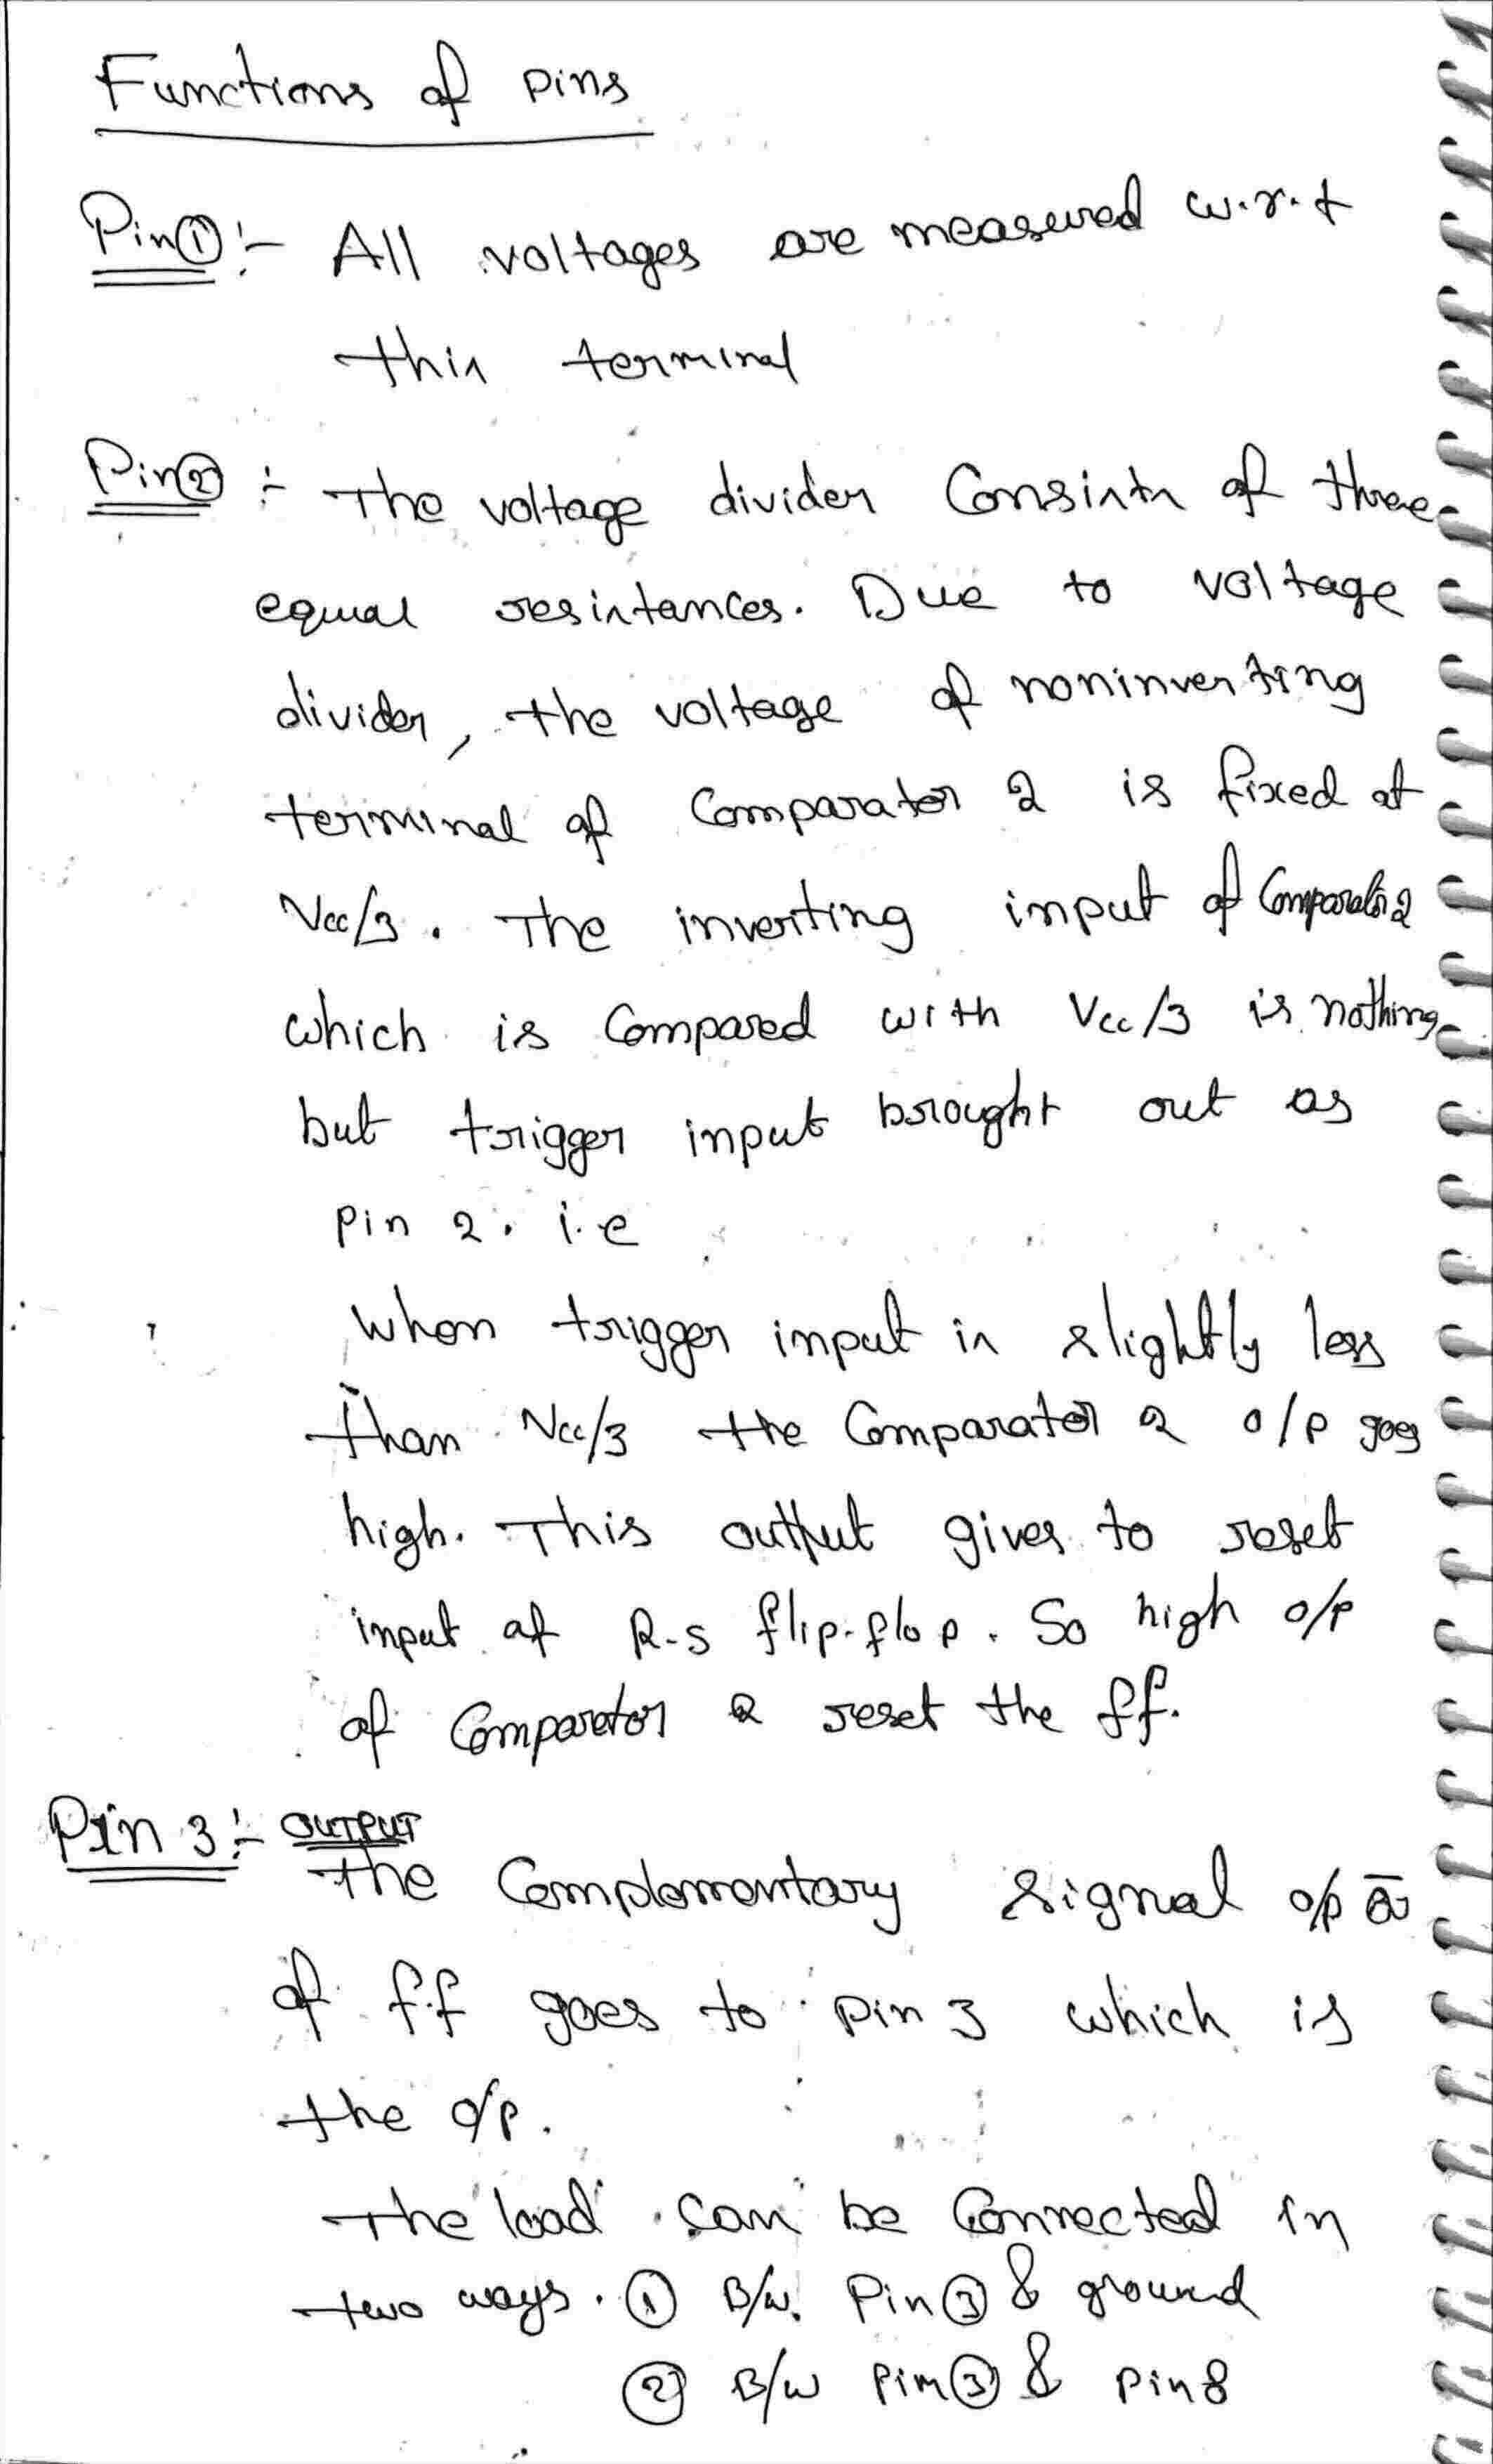 Functions of pins
Pin①:- All voltages are measured w.r.t
this terminal
Pin② :- The voltage divider Consists of three
equal resistances. Due to voltage
divider, the voltage of noninverting
terminal of Comparator 2 is fixed at
Vcc/3. The inverting input of Comparator 2
which is Compared with Vcc/3 is nothing
but trigger input brought out as
pin 2. i.e
When trigger input is slightly less
than Vcc/3 the Comparator 2 o/p goes
high. This output gives to reset
input of R-S flip-flop. So high o/p
of Comparator 2 reset the ff.
Pin 3:- OUTPUT
The Complementary signal o/p Q̅
of f.f goes to pin 3 which is
the o/p.
The load can be Connected in
two ways. ① B/w. Pin③ & ground
② B/w Pin③ & pin 8